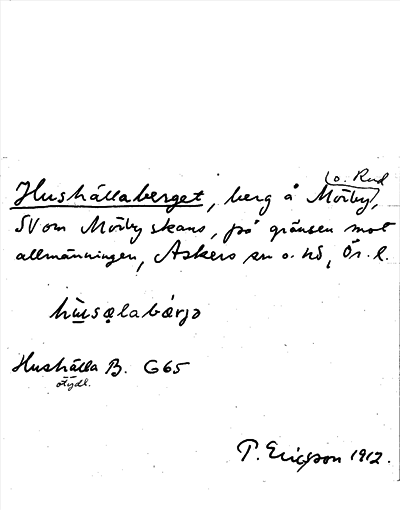 o. Rud
Hushållaberget, berg å Mörby,
SV om Mörby skans, på gränsen mot
allmänningen, Askers sn o. hd, Ör. l.
hùsalabárjə
Hushålla B. G65
otydl.
T. Ericsson 1912.